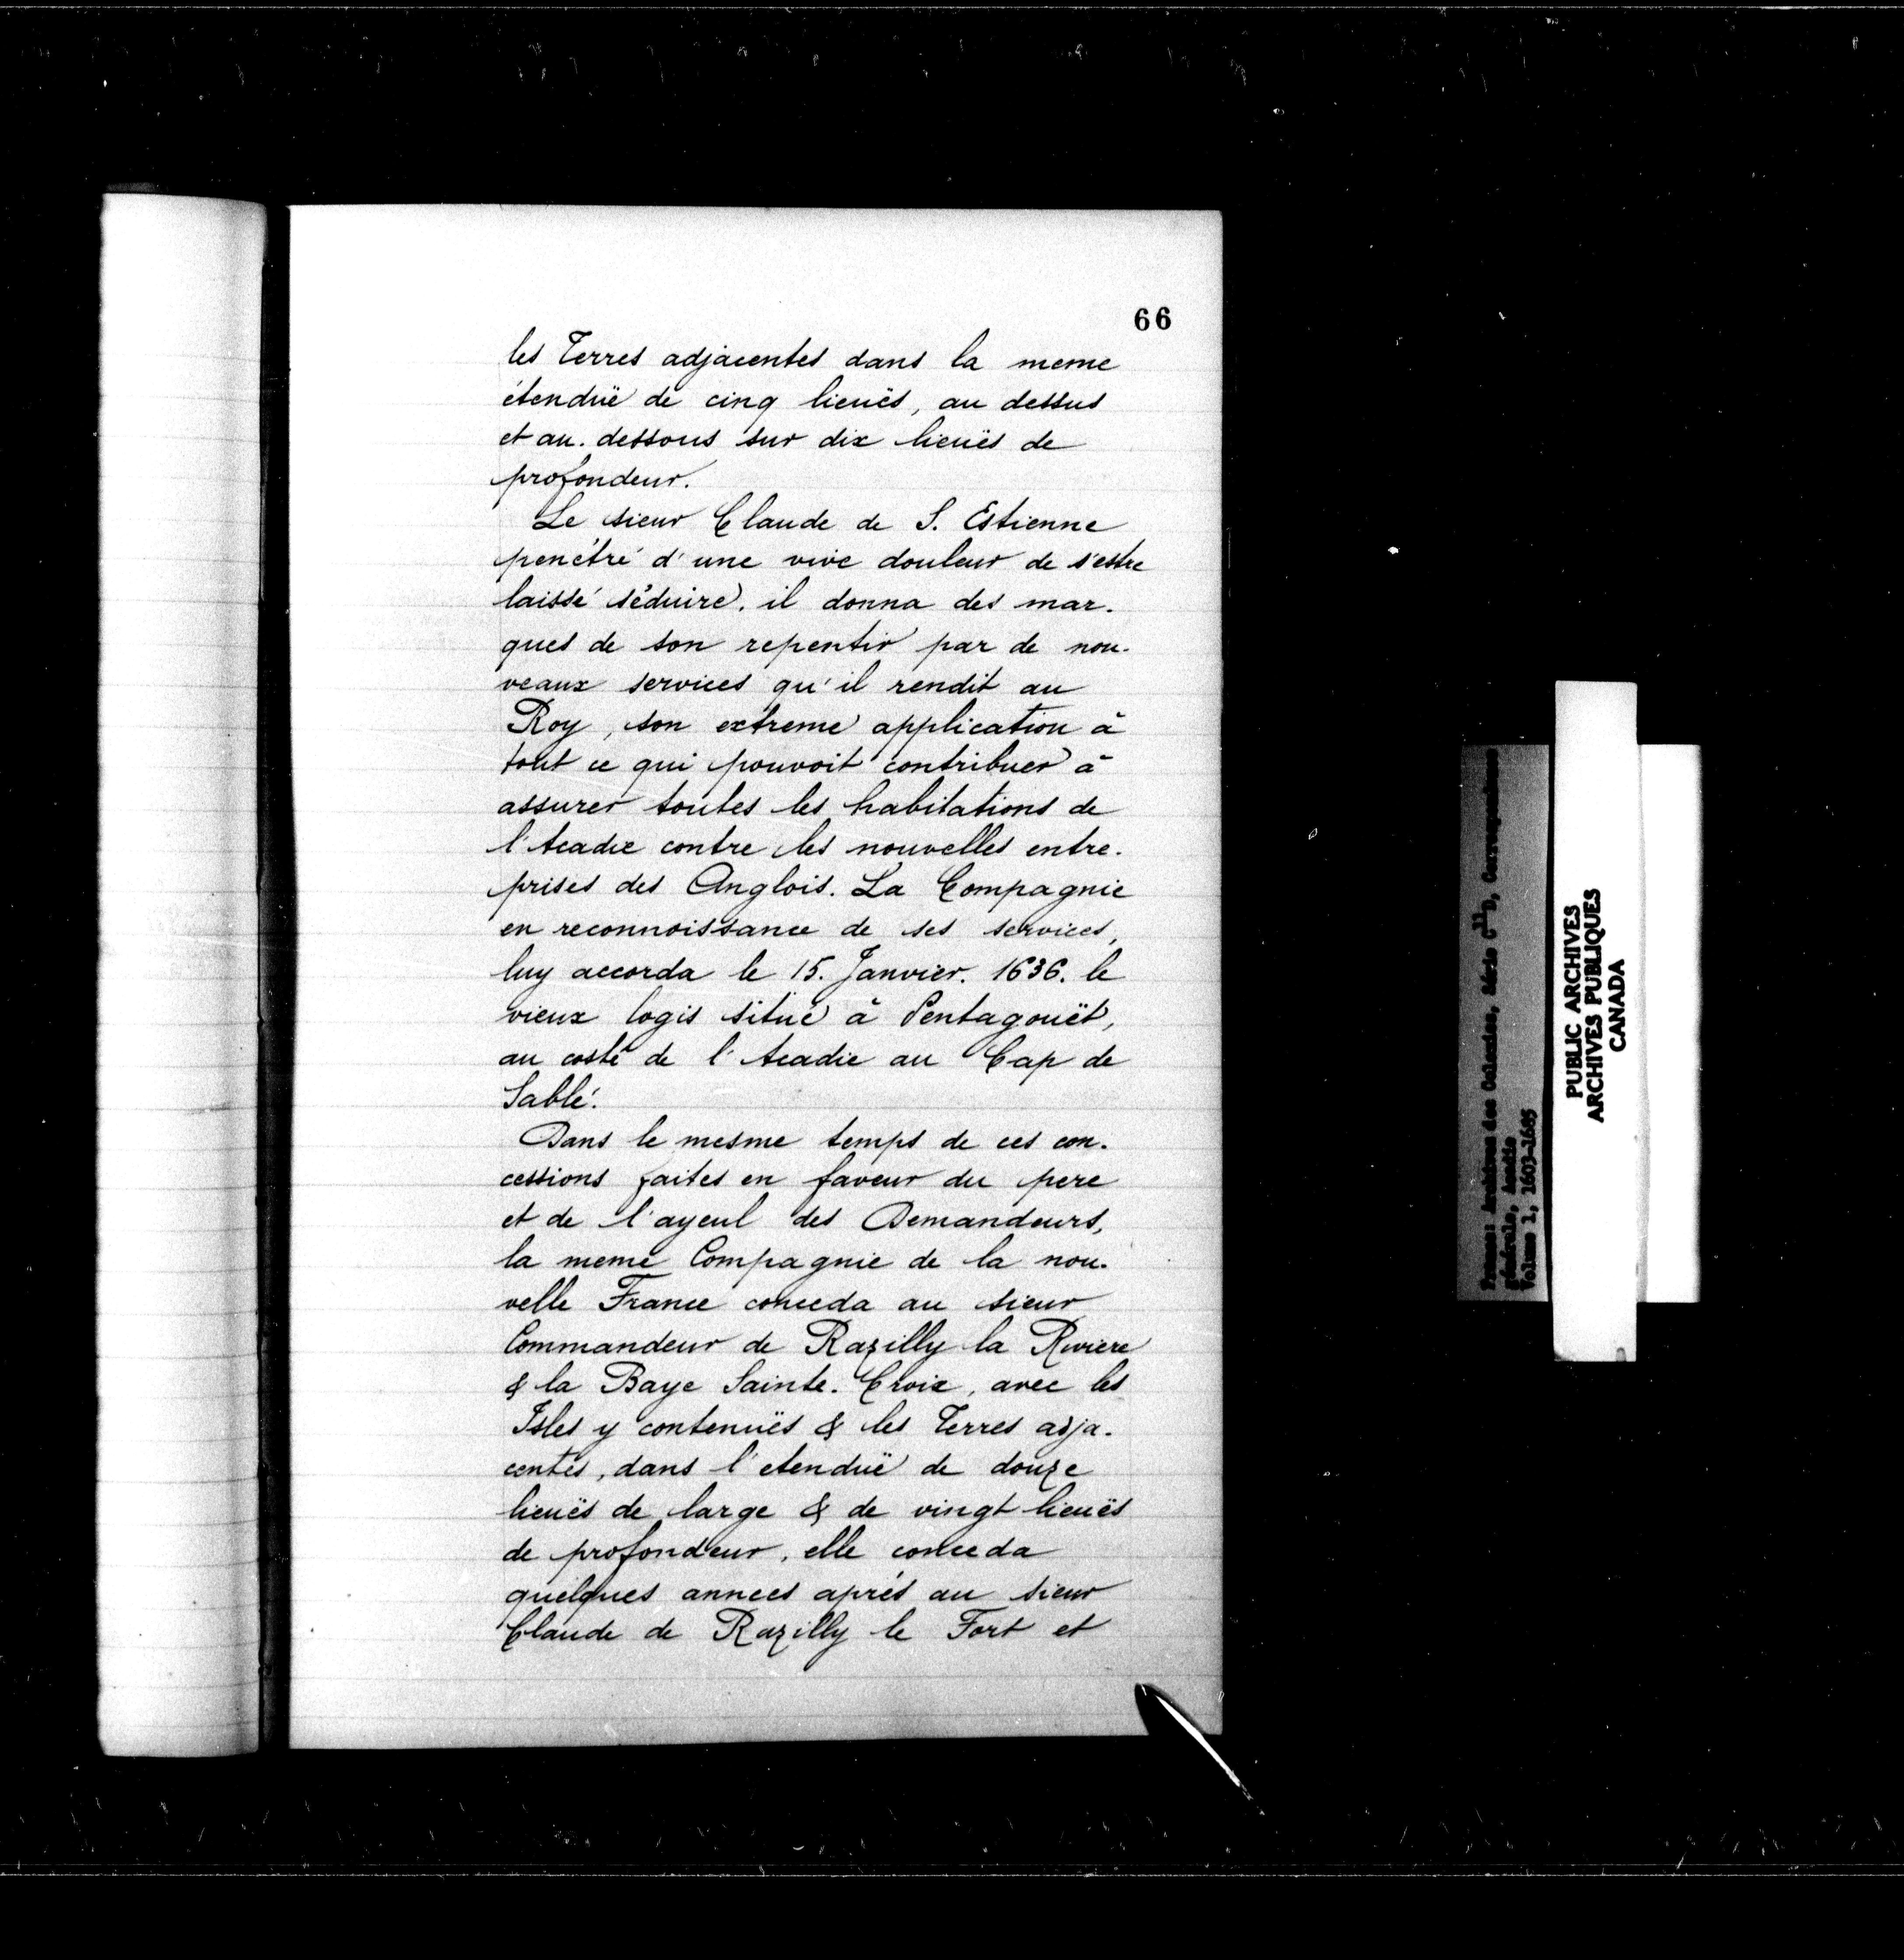 66
les Terres adjacentes dans la meme
étenduë de cinq lieuës, au dessus
et au. dessous sur dix lieuës de
profondeur.
Le sieur Claude de S. Estienne
penétré d'une vive douleur de s'estre
laissé séduire. il donna des mar-
ques de son repentir par de nou-
veaux services qu'il rendit au
Roy, son extreme application à
tout ce qui pouvoit contribuer à
assurer toutes les habitations de
l'Acadie contre les nouvelles entre-
prises des Anglois. La Compagnie
en reconnoissance de ses services,
luy accorda le 15. Janvier. 1636. le
vieux logis situé à Pentagouët,
au costé de l'Acadie au Cap de
Sablé.
Dans le mesme temps de ces con-
cessions faites en faveur du pere
et de l'ayeul des Demandeurs,
la meme Compagnie de la nou-
velle France conceda au sieur
Commandeur de Razilly la Riviere
& la Baye Sainte-Croix, avec les
Isles y contenuës & les Terres adja-
centes, dans l'etenduë de douze
lieuës de large & de vingt lieuës
de profondeur, elle conceda
quelques annees aprés au sieur
Claude de Razilly le Fort et
France: Archives des Colonies, Série C11D, Correspondance
générale, Acadie
Volume 1, 1603-1685
PUBLIC ARCHIVES
ARCHIVES PUBLIQUES
CANADA